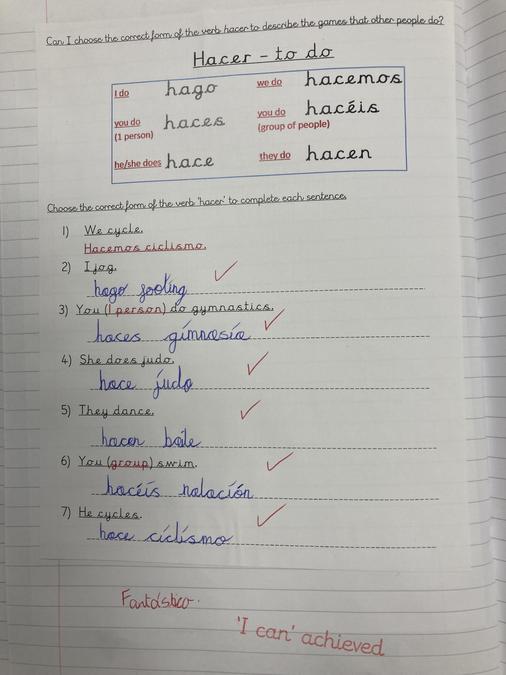 Can I choose the correct form of the verb hacer to describe the games that other people do?
Hacer - to do
I do hago we do hacemos
you do (1 person) haces you do (group of people) hacéis
he/she does hace they do hacen
Choose the correct form of the verb 'hacer' to complete each sentence.
1) We cycle.
Hacemos ciclismo.
2) I jog.
hago footing
3) You (1 person) do gymnastics.
haces gimnasia
4) She does judo.
hace judo
5) They dance.
hacen baile
6) You (group) swim.
hacéis natación
7) He cycles.
hace ciclismo
Fantástico.
'I can' achieved